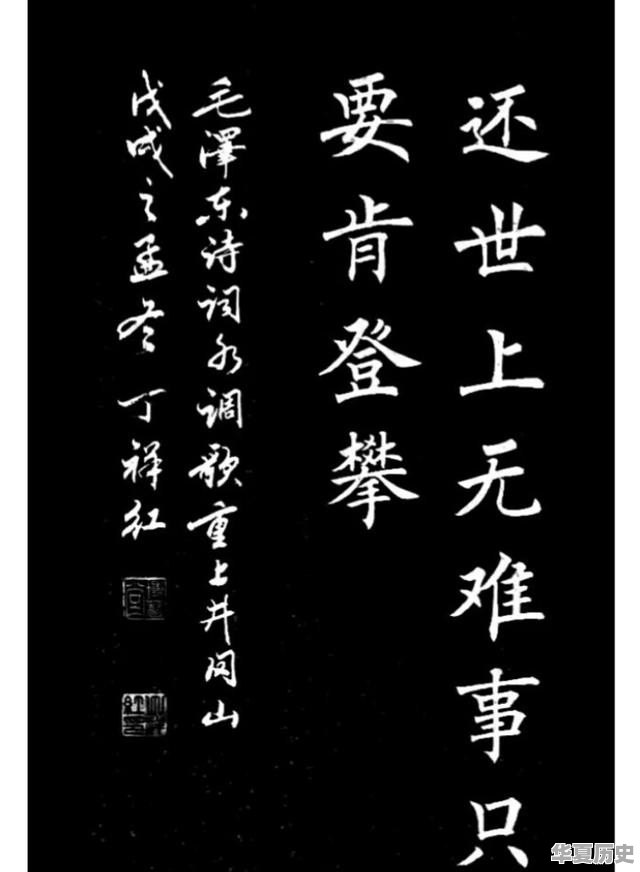 还世上无难事只
要肯登攀
毛澤东诗词水调歌重上井冈山
戊戌之孟冬 丁祥红
华夏历史